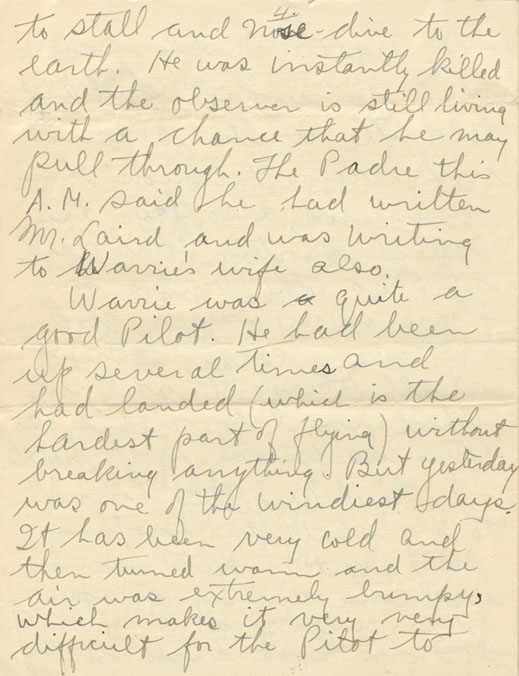 4.
to stall and nose-dive to the
earth. He was instantly killed
and the observer is still living
with a chance that he may
pull through. The Padre this
A.M. said he had written
Mr. Laird and was writing
to Warrie's wife also.
Warrie was a quite a
good Pilot. He had been
up several times and
had landed (which is the
hardest part of flying) without
breaking anything. But yesterday
was one of the windiest days.
It has been very cold and
then turned warm and the
air was extremely bumpy,
which makes it very very
difficult for the Pilot to